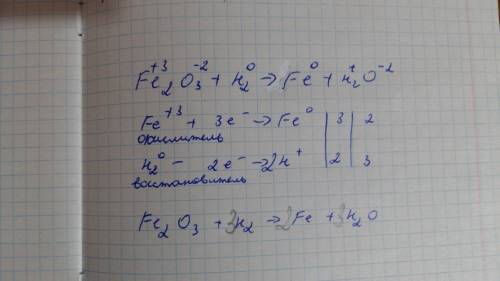 Fe₂⁺³O₃⁻² + H₂⁰ → Fe⁰ + H₂⁺O⁻²
Fe⁺³ + 3e⁻ → Fe⁰ | 3 | 2
окислитель
H₂⁰ - 2e⁻ → 2H⁺ | 2 | 3
восстановитель
Fe₂O₃ + 3H₂ → 2Fe + 3H₂O